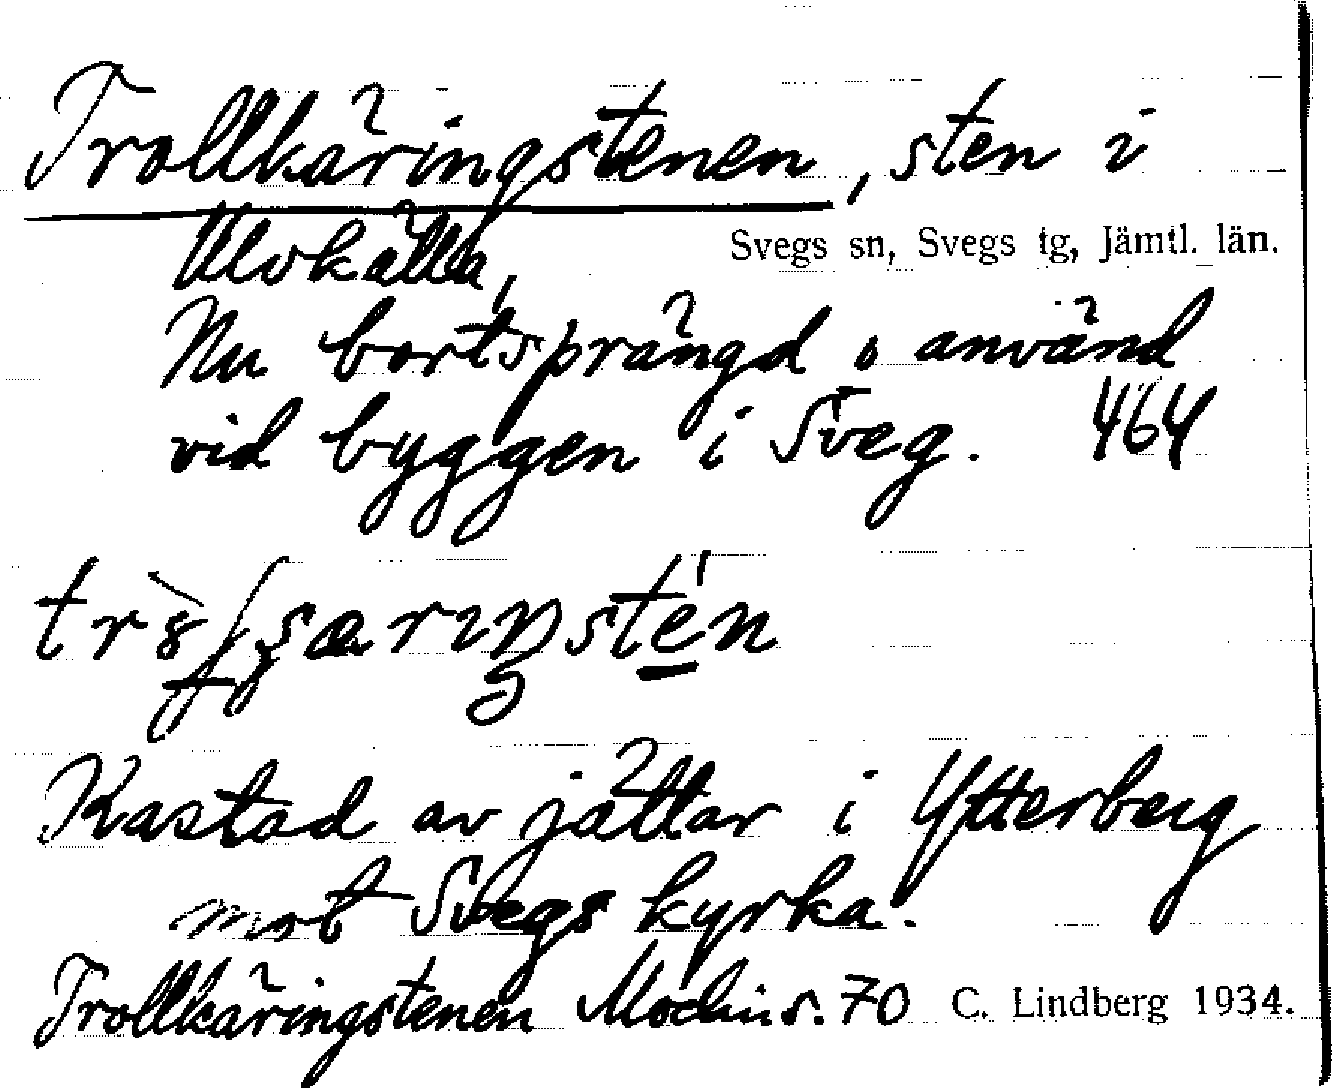 Trollkäringstenen, sten i
Ulvkälla,
Svegs sn, Svegs tg, Jämtl. län.
Nu bortsprängd o använd
vid byggen i Sveg. 464
Kastad av jättar i Ytterberg
mot Svegs kyrka.
Trollkäringstenen Modin s. 70 C. Lindberg 1934.